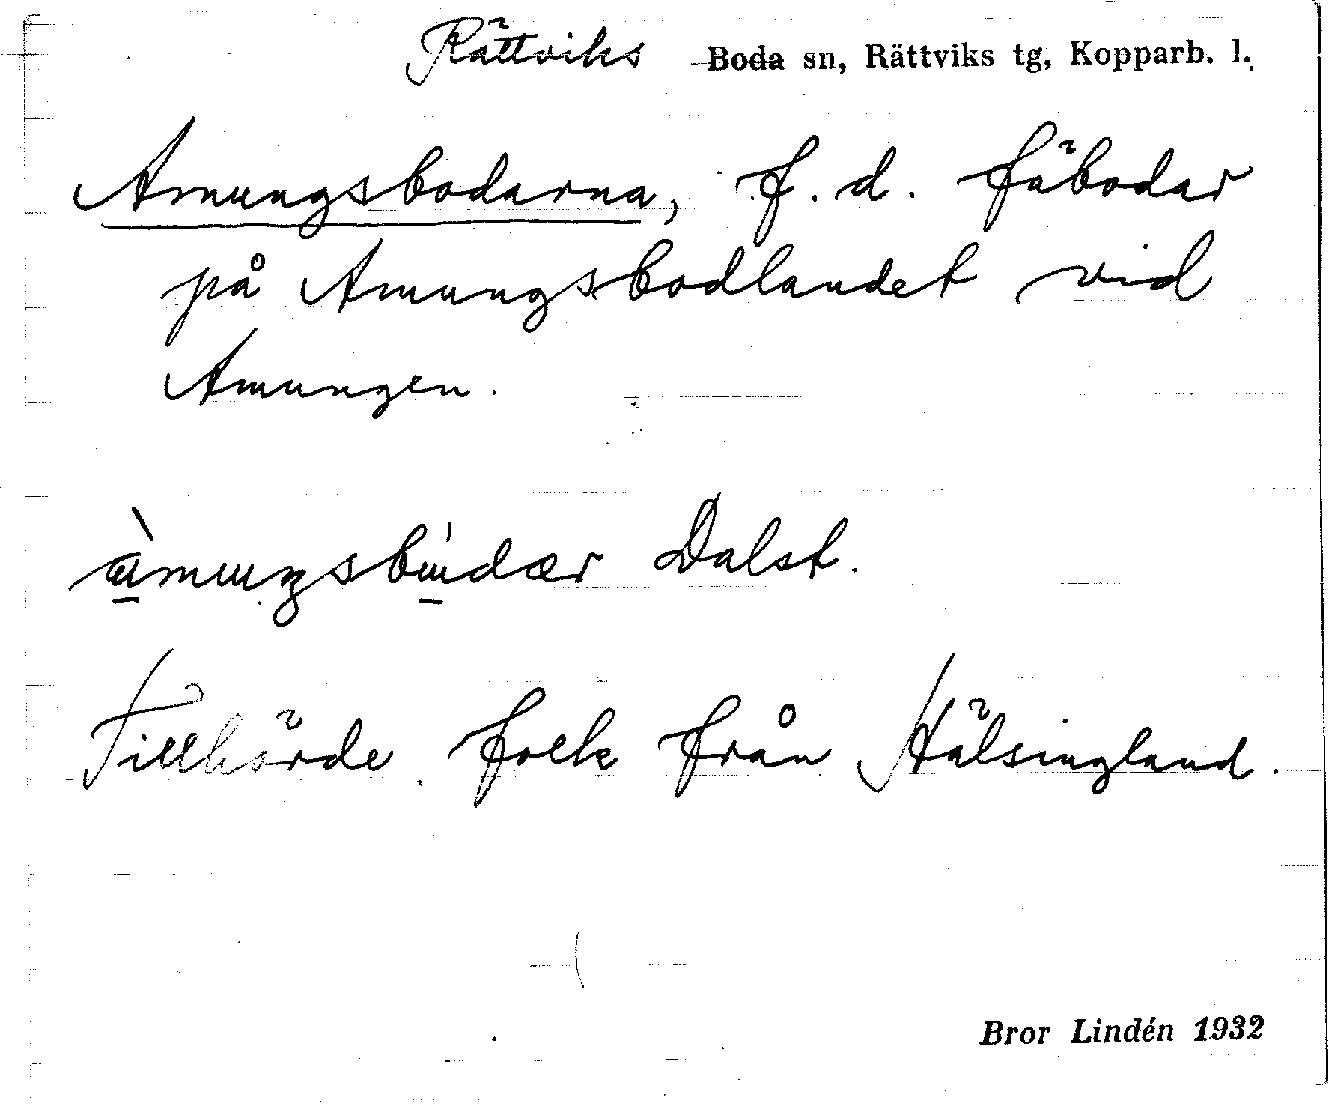 Rättviks Boda sn, Rättviks tg, Kopparb. l.
Amungsbodarna, f. d. fäbodar
på Amungsbodlandet vid
Amungen.
Dalst.
Tillhörde folk från Hälsingland.
Bror Lindén 1932